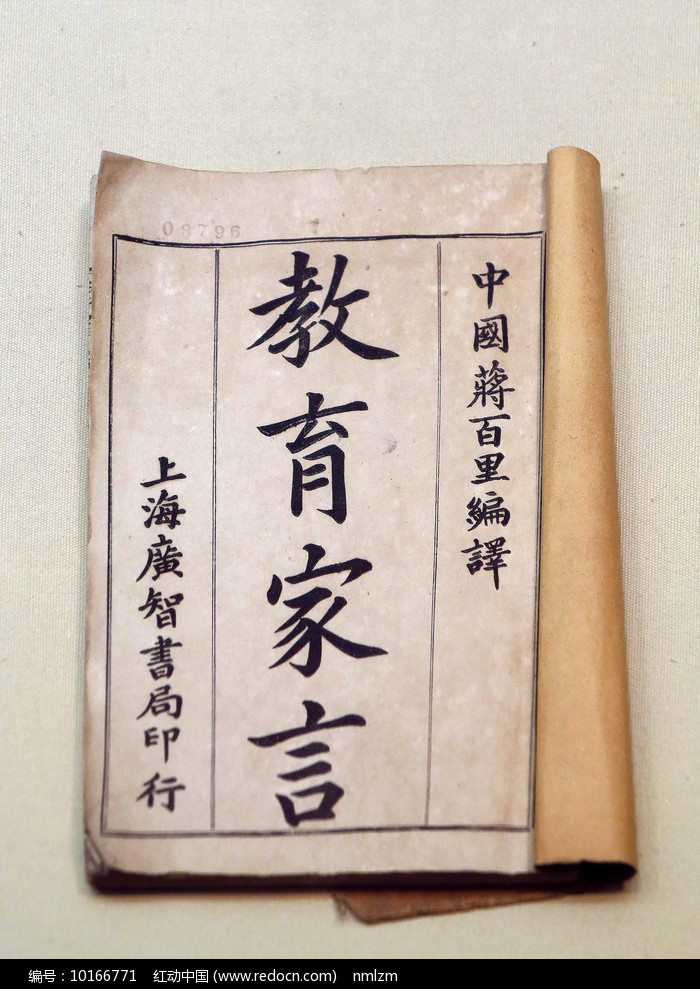 08796
中國蔣百里編譯
教育家言
上海廣智書局印行
编号：10166771 红动中国 (www.redocn.com) nmlzm